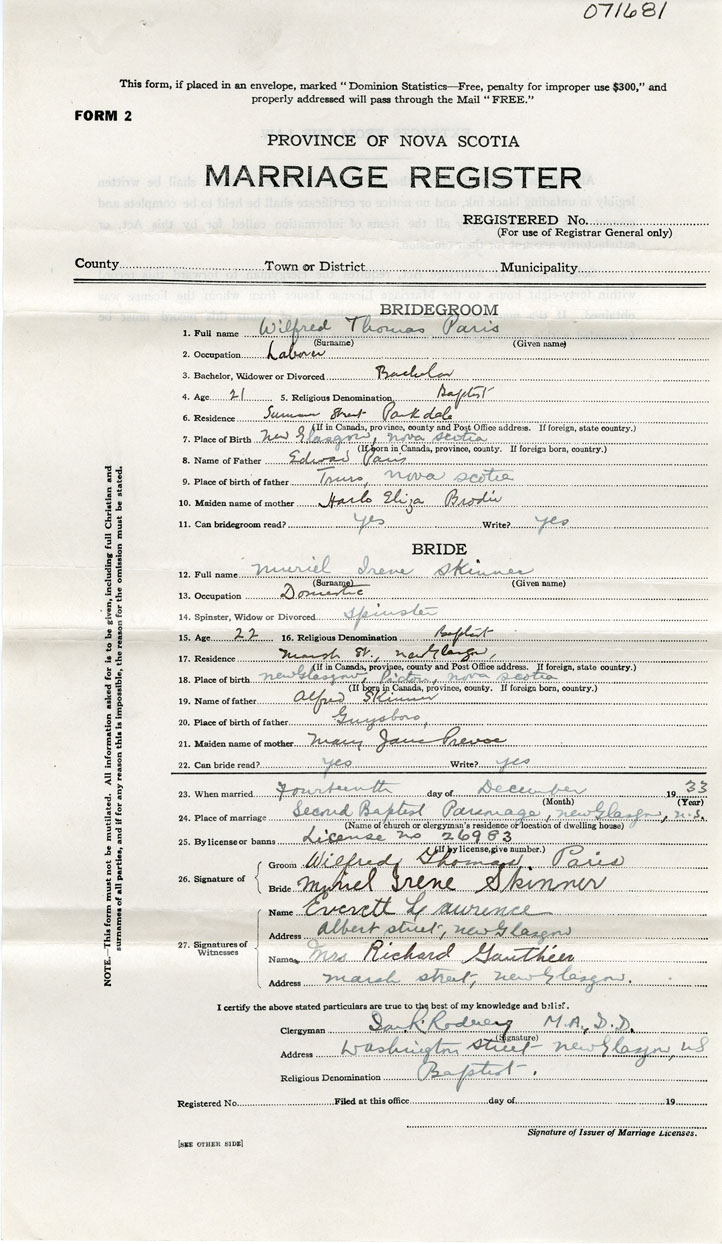 071681
This form, if placed in an envelope, marked "Dominion Statistics—Free, penalty for improper use $300," and
properly addressed will pass through the Mail "FREE."
FORM 2
PROVINCE OF NOVA SCOTIA
MARRIAGE REGISTER
REGISTERED No.
(For use of Registrar General only)
County Town or District Municipality
BRIDEGROOM
1. Full name Wilfred Thomas Paris
(Surname) (Given name)
2. Occupation Laborer
3. Bachelor, Widower or Divorced Bachelor
4. Age 21 5. Religious Denomination Baptist
6. Residence Summer Street Parkdale
(If in Canada, province, county and Post Office address. If foreign, state country.)
7. Place of Birth New Glasgow, nova scotia
(If born in Canada, province, county. If foreign born, country.)
8. Name of Father Edward Paris
9. Place of birth of father Truro, nova scotia
10. Maiden name of mother Eliza
11. Can bridegroom read? yes Write? yes
BRIDE
12. Full name Muriel Irene Skinner
(Surname) (Given name)
13. Occupation Domestic
14. Spinster, Widow or Divorced Spinster
15. Age 22 16. Religious Denomination Baptist
17. Residence Marsh St., new Glasgow,
(If in Canada, province, county and Post Office address. If foreign, state country.)
18. Place of birth new Glasgow, Pictou, nova scotia
(If born in Canada, province, county. If foreign born, country.)
19. Name of father Alfred Skinner
20. Place of birth of father Guysboro,
21. Maiden name of mother Mary Jane Prevoe
22. Can bride read? yes Write? yes
23. When married Fourteenth day of December 1933
(Month) (Year)
24. Place of marriage Second Baptist Parsonage, new Glasgow, n.s.
(Name of church or clergyman's residence or location of dwelling house)
25. By license or banns License no 26983
(If by license, give number.)
26. Signature of
Groom Wilfred Thomas Paris
Bride Muriel Irene Skinner
27. Signatures of Witnesses
Name Everett Lawrence
Address Albert street, new Glasgow
Name Mrs Richard Gauthier
Address marsh street, new Glasgow.
I certify the above stated particulars are true to the best of my knowledge and belief.
Clergyman M.A., D.D.
(Signature)
Address Washington street new Glasgow, NS
Religious Denomination Baptist.
Registered No. Filed at this office day of 19
Signature of Issuer of Marriage Licenses.
[SEE OTHER SIDE]
NOTE.—This form must not be mutilated. All information asked for is to be given, including full Christian and
surnames of all parties, and if for any reason this is impossible, the reason for the omission must be stated.